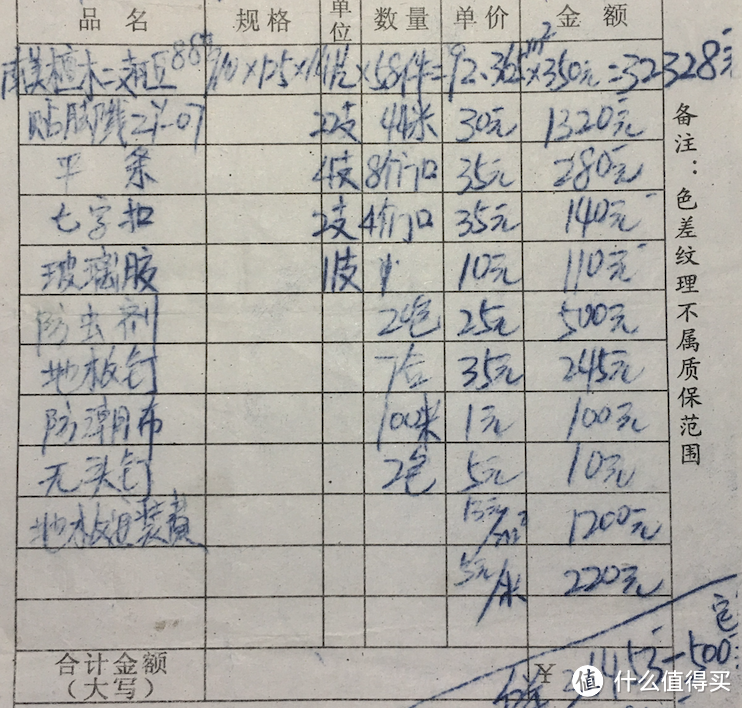 品名 规格 单位 数量 单价 金额
南美檀木二 88# 910×125×14 ×5814=92.365m²×350元=32328元
贴脚线ZY-07 22支 44米 30元 1320元
平条 4支 8个门口 35元 280元
七字扣 2支 4个门口 35元 140元
玻璃胶 11支 10元 110元
防虫剂 20包 25元 500元
地板钉 7合 35元 245元
防潮布 100米 1元 100元
无头钉 2包 5元 10元
地板安装费 13元/m² 1200元
5元/米 220元
合计金额
(大写) ¥ 1453-500
备注：色差纹理不属质保范围
值 什么值得买